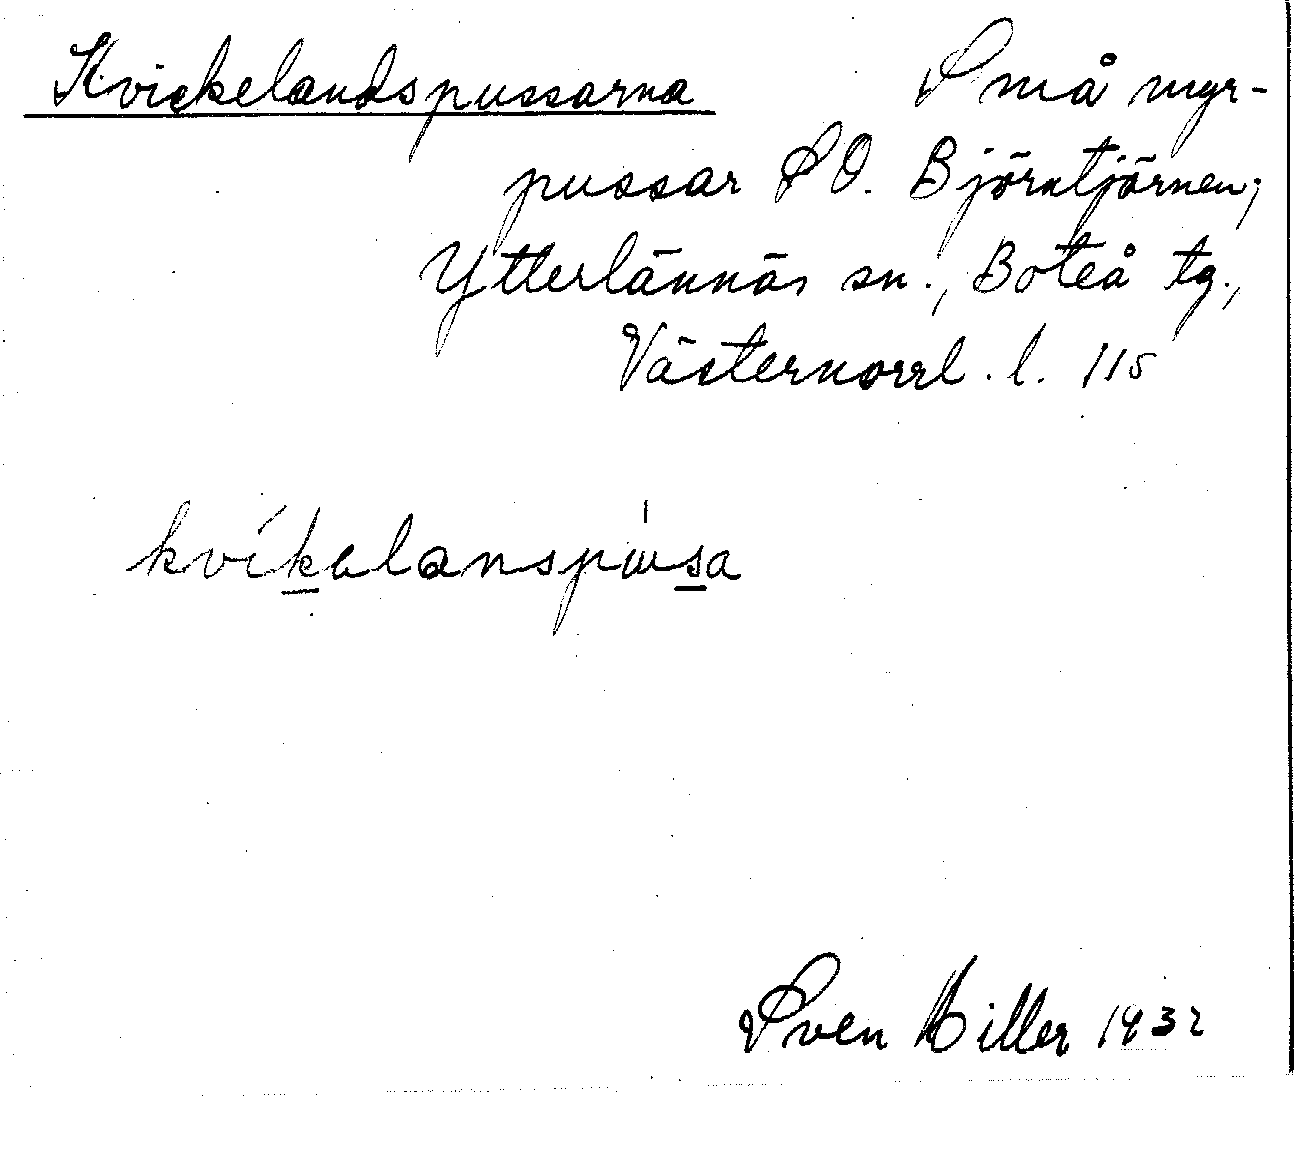 Kvickelandspussarna Små myr-
pussar SO. Björntjörnen;
Ytterlännäs sn., Boteå tg.,
Västernorrl. l. 115
Sven Hiller 1932